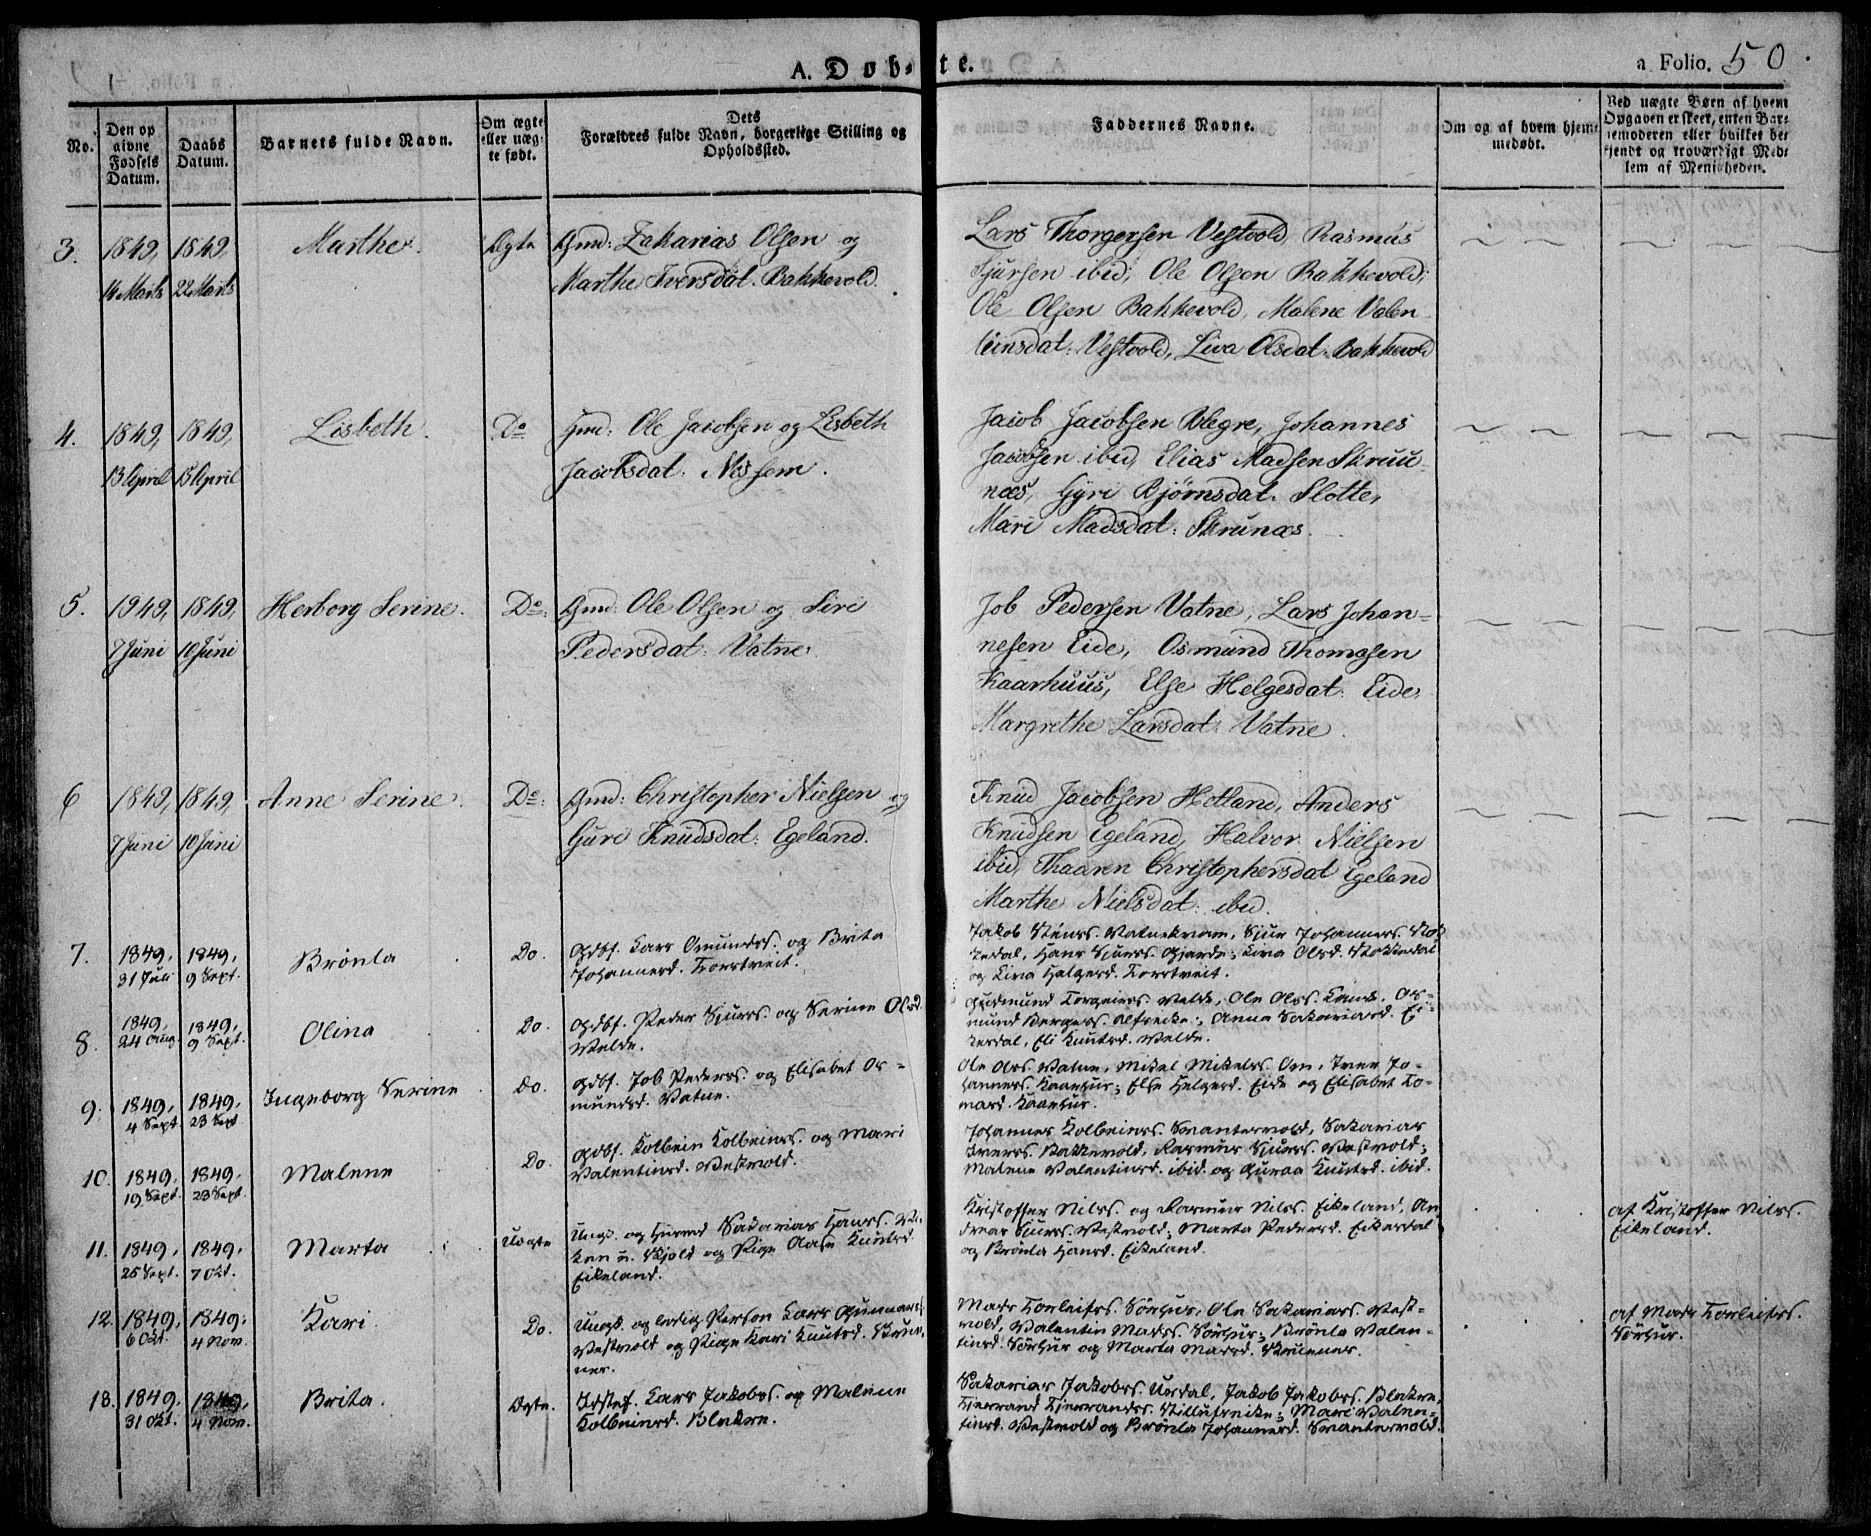 A. Døb-te.
a Folio. 50.
No.
Den op
givne
Fødsels
Datum.
Daabs
Datum.
Barnets fulde Navn.
Om ægte
eller uæg-
te født.
Dets
Forældres fulde Navn, borgerlige Stilling og
Opholdssted.
Faddernes Navne.
Om og af hvem hjem-
medøbt.
Ved uægte Børn af hvem
Opgaven er skeet, enten Bar-
nemoderen eller hvilket be-
kjendt og troværdigt Med-
lem af Menigheden.
3.
1849,
14 Marts
1849,
22 Marts
Marthe.
Ægte
Gmd: Zakarias Olsen og
Marthe Iversdat. Bakkevold.
Lars Thorgersen Vestvold, Rasmus
Sjursen ibid; Ole Olsen Bakkevold;
Ole Olsen Bakkevold, Malene Valen-
teinsdat: Vestvold, Liva Olsdat. Bakkevold
4.
1849,
13 April
1849,
15 April
Lisbeth.
Do
Gmd: Ole Jacobsen og Lisbeth
Jacobsdat. Nessem.
Jacob Jacobsen Blegre, Johannes
Jacobsen ibid, Elias Madsen Skruu-
næs, Gyri Bjørnsdat. Slotte,
Mari Madsdat: Skrunæs.
5.
1949,
7 Juni
1849,
10 Juni
Herborg Serine.
Do:
Gmd: Ole Olsen og Siri
Pedersdat: Vatne.
Job Pedersen Vatne, Lars Johan-
nesen Eide, Osmund Thomasen
Kaarhuus, Else Helgesdat: Eide,
Margrethe Larsdat: Vatne.
6
1849,
7 Juni
1849,
10 Juni
Anne Serine.
Do:
Gmd: Christopher Nielsen og
Guri Knudsdat: Egeland.
Knud Jacobsen Hetland, Anders
Knudsen Egeland, Halvor Nielsen
ibid, Thaaren Christophersdat Egeland
Marthe Nielsdat: ibid.
7.
1849.
31 Juli
1849.
9 Sept.
Brønla
Do.
Gdbf. Lars Omunds. og Brita
Johannesd. Torstveit.
Jakob Stens. Vatnekvam, Sjur Johanness. Stok-
kedal, Hans Sjurs. Gjærde; Liva Olsd. Stokkedal
og Liva Helgesd. Torstveit.
8.
1849,
24 Aug.
1849,
9 Sept.
Olina
Do.
Gdbf. Peder Sjurs. og Serine Olsd.
Velde.
Gudmund Torgeirs. Velde, Ole Ols.
mund Berges. ; Anna Sakariasd. Ei-
kesdal, Eli Knutsd. Velde.
9.
1849,
4 Sept.
1849.
23 Sept
Ingeborg Serine
Do.
Gdbf. Job Peders. og Elisabet Os-
mundsd. Vatne.
Ole Ols. Vatne, Mikel Mikels. Om, Iver Jo-
hanness. Kaarhus; Else Helgesd. Eide og Elisabet To-
masd. Kaarhus.
10.
1849.
19 Sept.
1849.
23 Sept.
Malene
Do.
Gdbf. Kolbein Kolbeins. og Mari
Valentinsd. Vestvold.
Johannes Kolbeins. Svantesvold, Sakarias
Ivers. Bakkevold, Rasmus Sjurs. Vestvold;
Malene Valentinsd. ibid. og Guroa Knutsd. ibid.
11.
1849,
25 Sept.
1849,
7 Okt.
Marta
Uægte
Ungk. og Sakarias Hans. Vi-
ken i Skjold og Pige Aase Knutsd
Eikeland.
Kristoffer Nils. og Rasmus Nils. Eikeland, An-
dreas Sjurs. Vestvold; Marta Pedersd. Eikesdal
og Brønla Hansd. Eikeland.
af Kristoffer Nils.
Eikeland.
12.
1849,
6 Okt.
1849.
4 Nov.
Kari.
Do.
Ungk. og ledig Person Lars Gunnars.
Vestvold og Pige Kari Knutsd. Skru-
nes.
Mads Torleifs. Sørhus, Ole Sakarias. Vest-
vold, Valentin Mads. Sørhus; Brønla Valen-
tinsd. Sørhus og Marta Madsd. Skrunes.
af Mads Torleifs.
Sørhus.
13.
1849.
31 Okt.
1849.
4 Nov.
Brita.
Ægte.
Lars Jakobs. og Malene
Kolbeinsd. Blekre.
Sakarias Jakobs. Uvedal, Jakob Jakobs. Blekre,
; Mari Valen-
tinsd. Vestvold og Brønla Johannesd. Svantesvold.